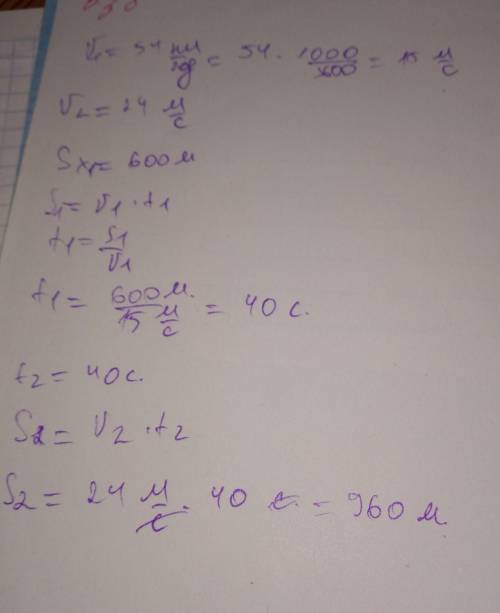 V₁ = 54 км/год = 54 · 1000/3600 = 15 м/с
V₂ = 24 м/с
Sх₁ = 600 м
S₁ = V₁ · t₁
t₁ = S₁/V₁
t₁ = 600 м/15 м/с = 40 с.
t₂ = 40 с.
S₂ = V₂ · t₂
S₂ = 24 м/с · 40 с. = 960 м